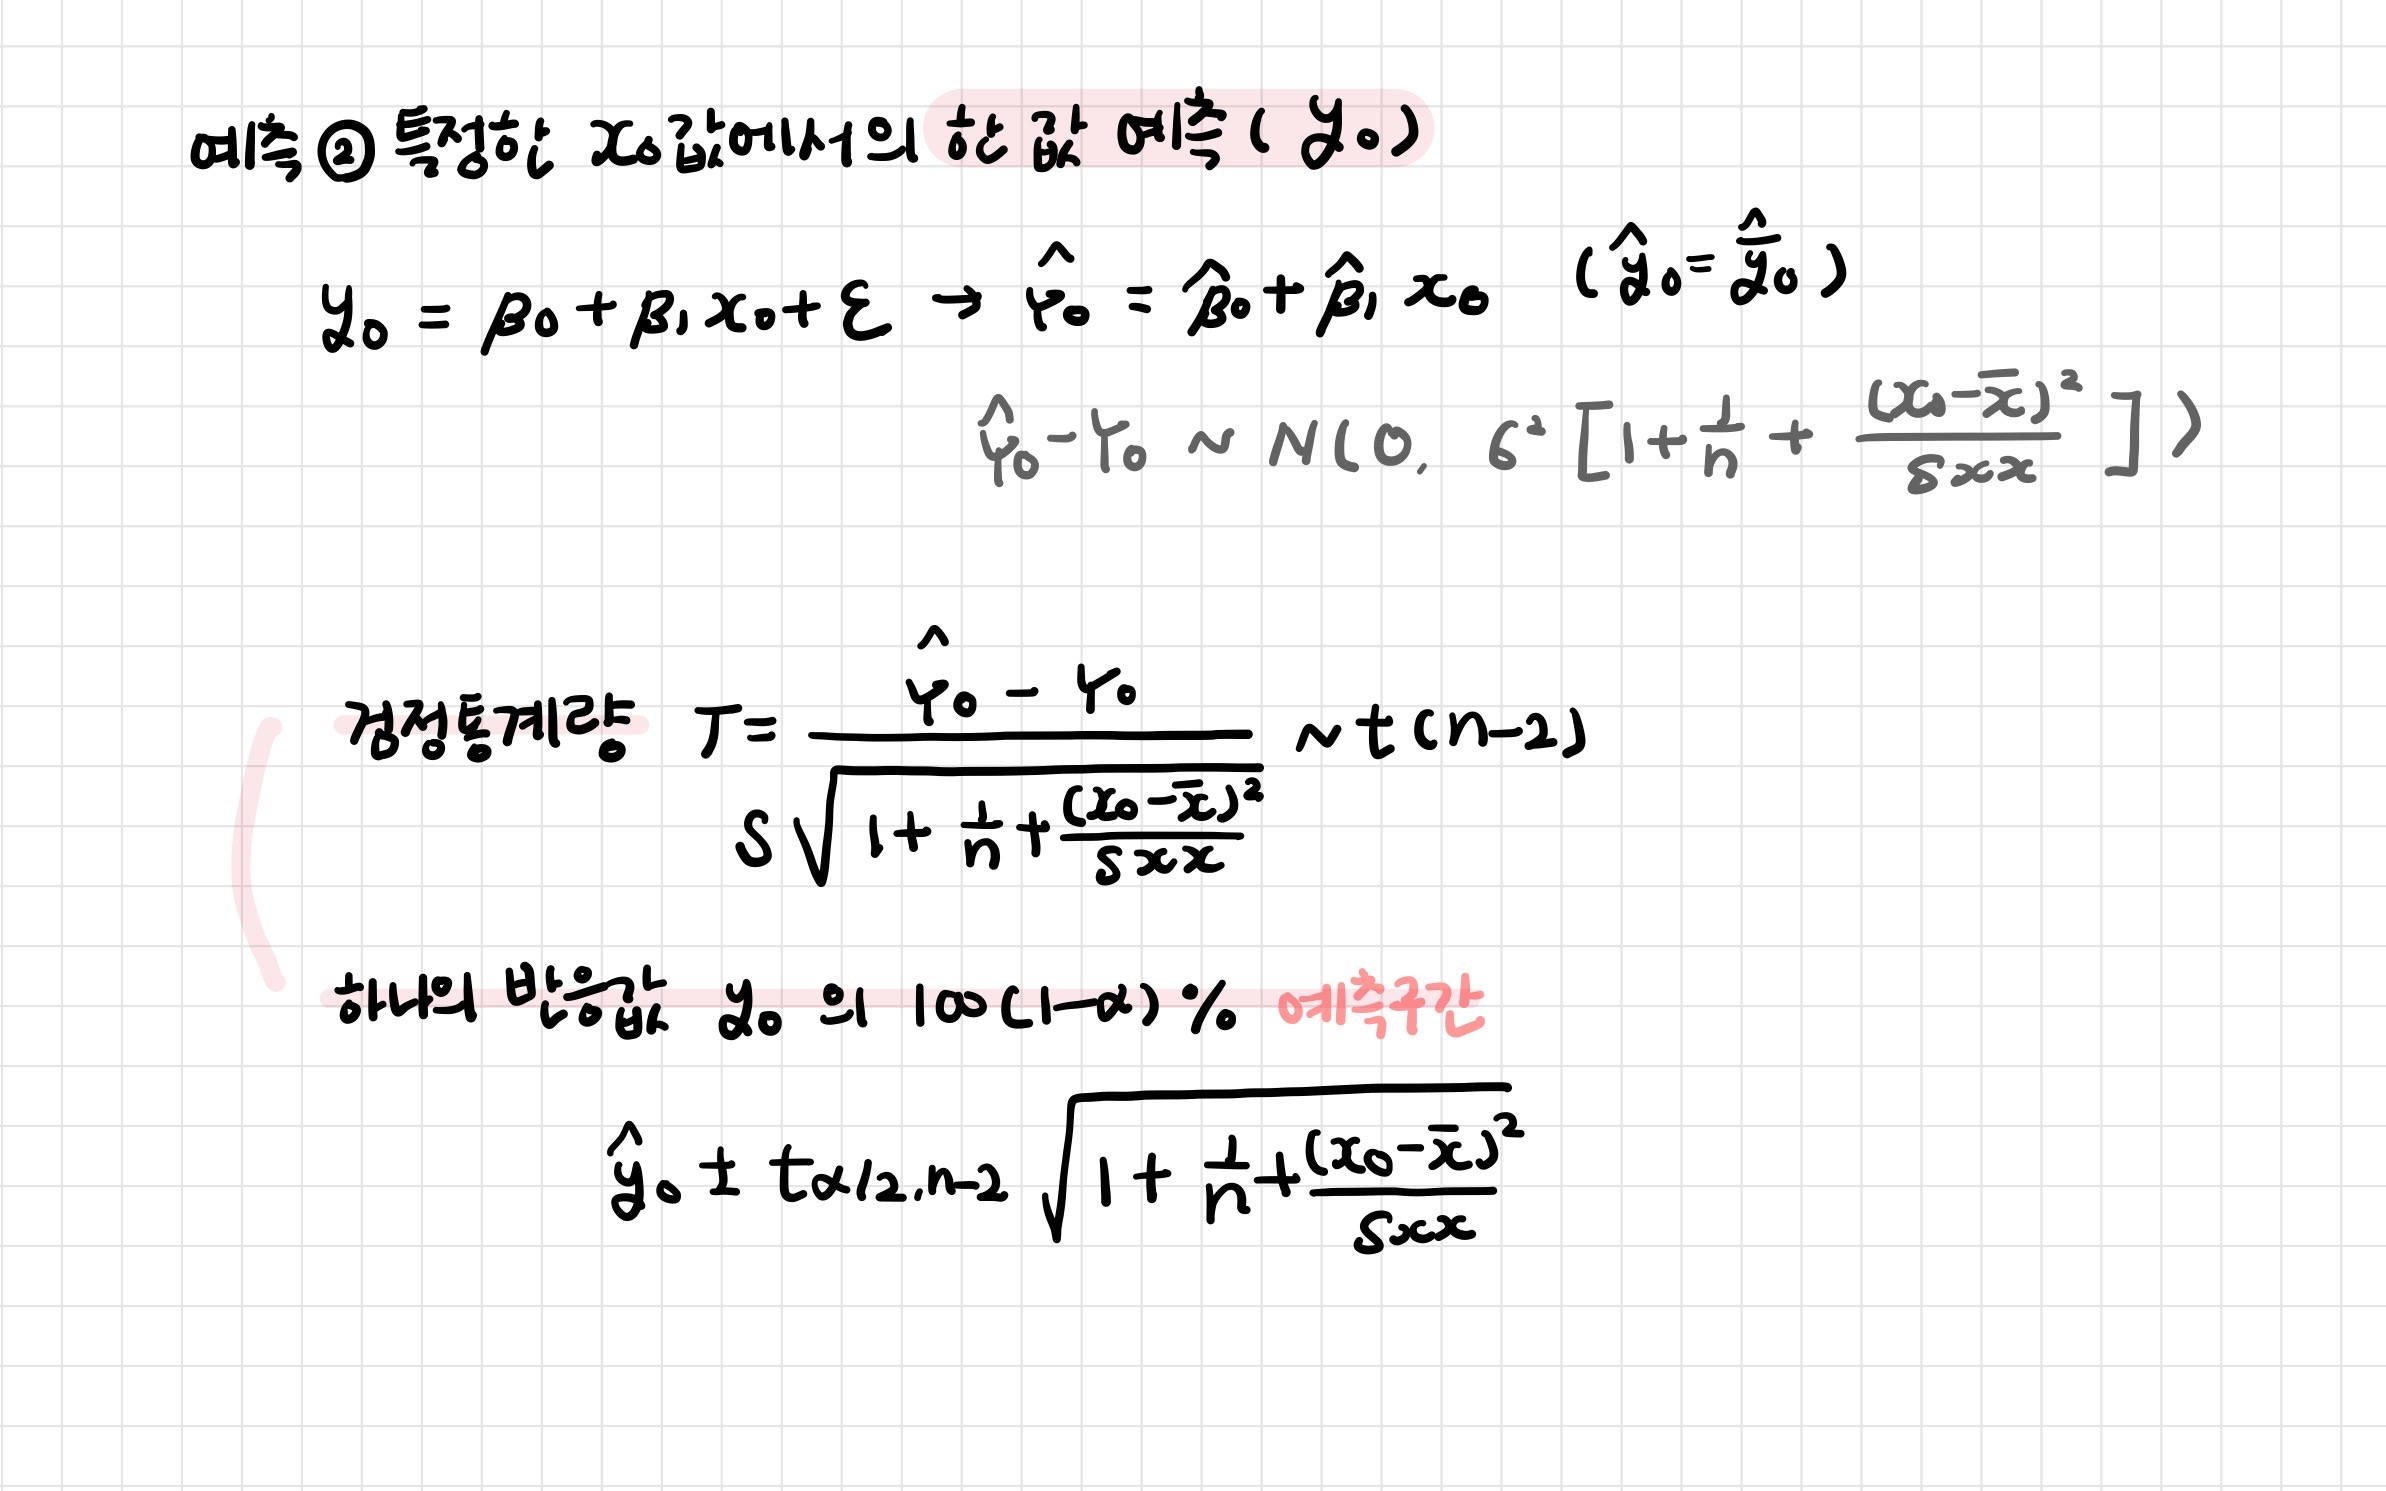 예측 ② 특정한 x₀값에서의 한 값 예측( y₀)
y₀ = β₀ + β₁x₀ + ε → Ŷ₀ = β̂₀ + β̂₁x₀ (ŷ₀ = ŷ̅₀)
Ŷ₀ - Y₀ ~ N(0, 6² [1 + 1/n + (x₀ - x̄)²/Sxx])
검정통계량 T = (Ŷ₀ - Y₀) / (S√(1 + 1/n + (x₀ - x̄)²/Sxx)) ~ t(n-2)
하나의 반응값 y₀ 의 100(1-α)% 예측구간
ŷ₀ ± tα/2.n-2 √(1 + 1/n + (x₀ - x̄)²/Sxx)